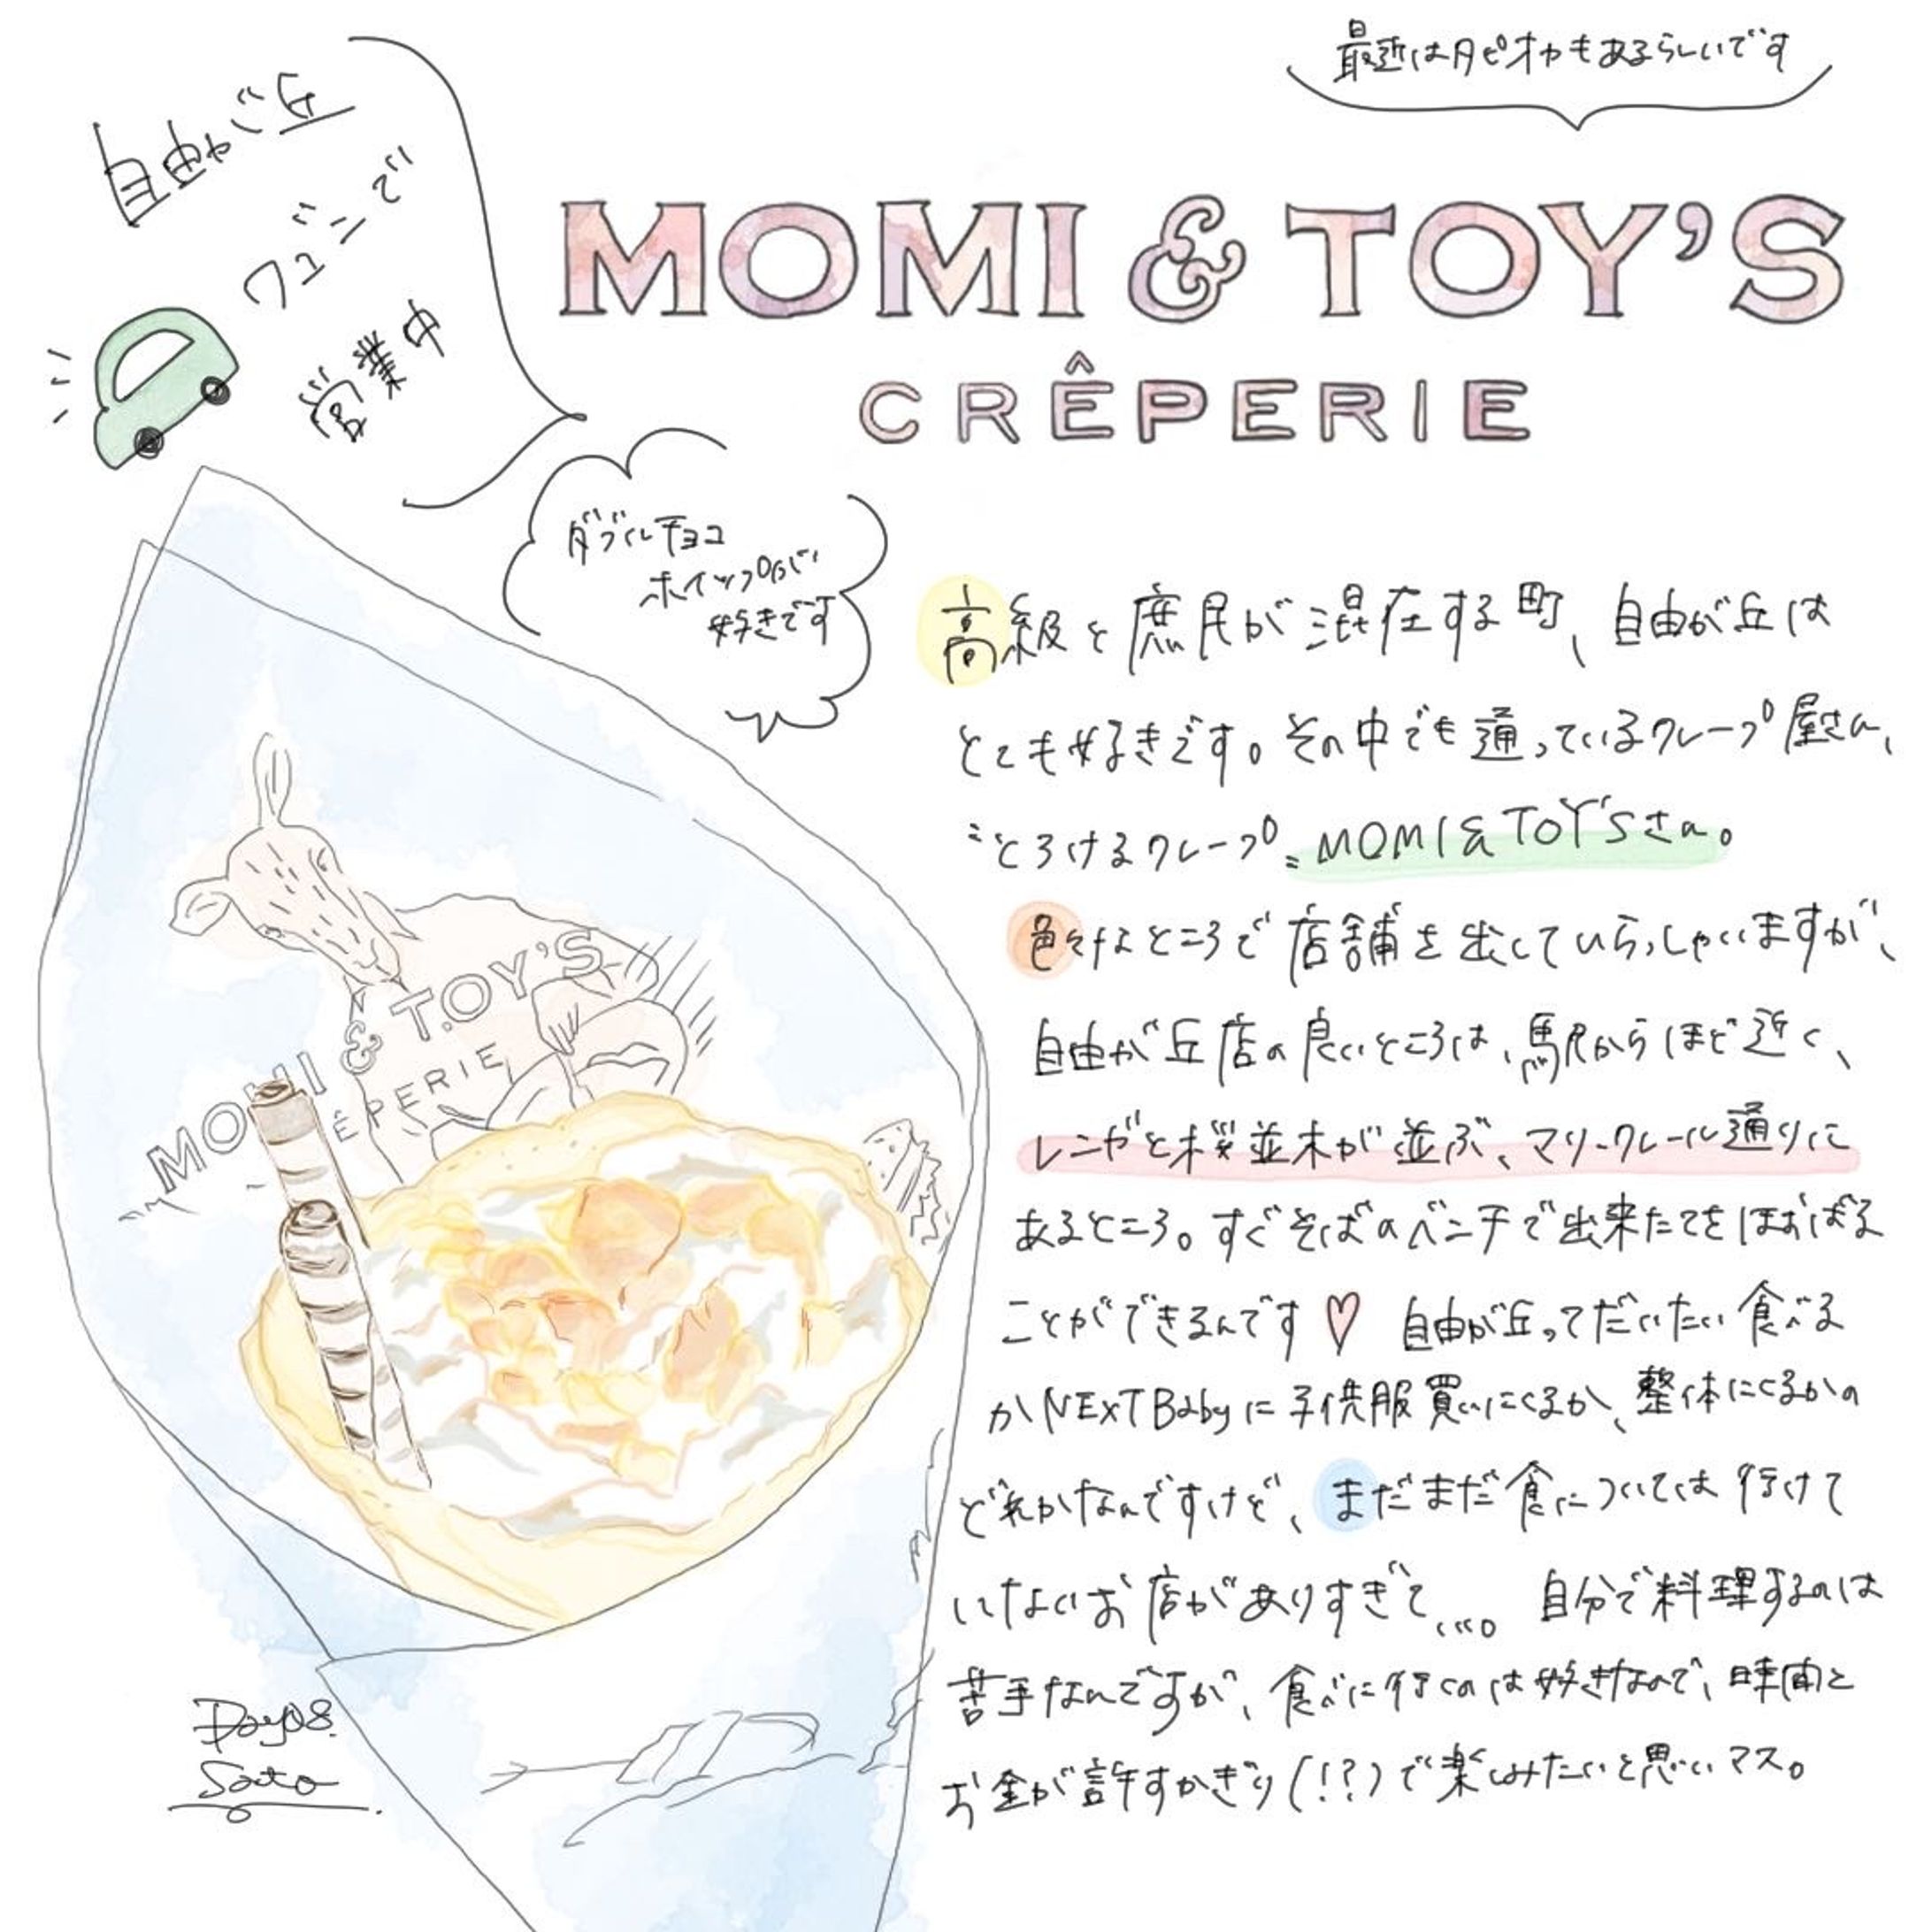 最近はタピオカもあるらしいです
自由が丘
ワゴンで
営業中
MOMI & TOY'S
CRÊPERIE
ダブルチョコ
ホイップが
好きです
高級と庶民が混在する町、自由が丘は
とても好きです。その中でも通っているクレープ屋さん、
"とろけるクレープ" MOMI & TOY'Sさん。
色々なところで店舗を出していらっしゃいますが、
自由が丘店の良いところは、駅からほど近く、
レンガと桜並木が並ぶ、マリ・クレール通りに
あるところ。すぐそばのベンチで出来たてをほおばる
ことができるんです♡ 自由が丘ってだいたい食べる
かNEXT Babyに子供服買いにくるか、整体にくるかの
どれかなんですけど、まだまだ食については行けて
いないお店がありすぎて…。自分で料理するのは
苦手なんですが、食べに行くのは好きなので、時間と
お金が許すかぎり(!?)で楽しみたいと思いマス。
MOMI & TOY'S
ÊPERIE
Day08.
Sato